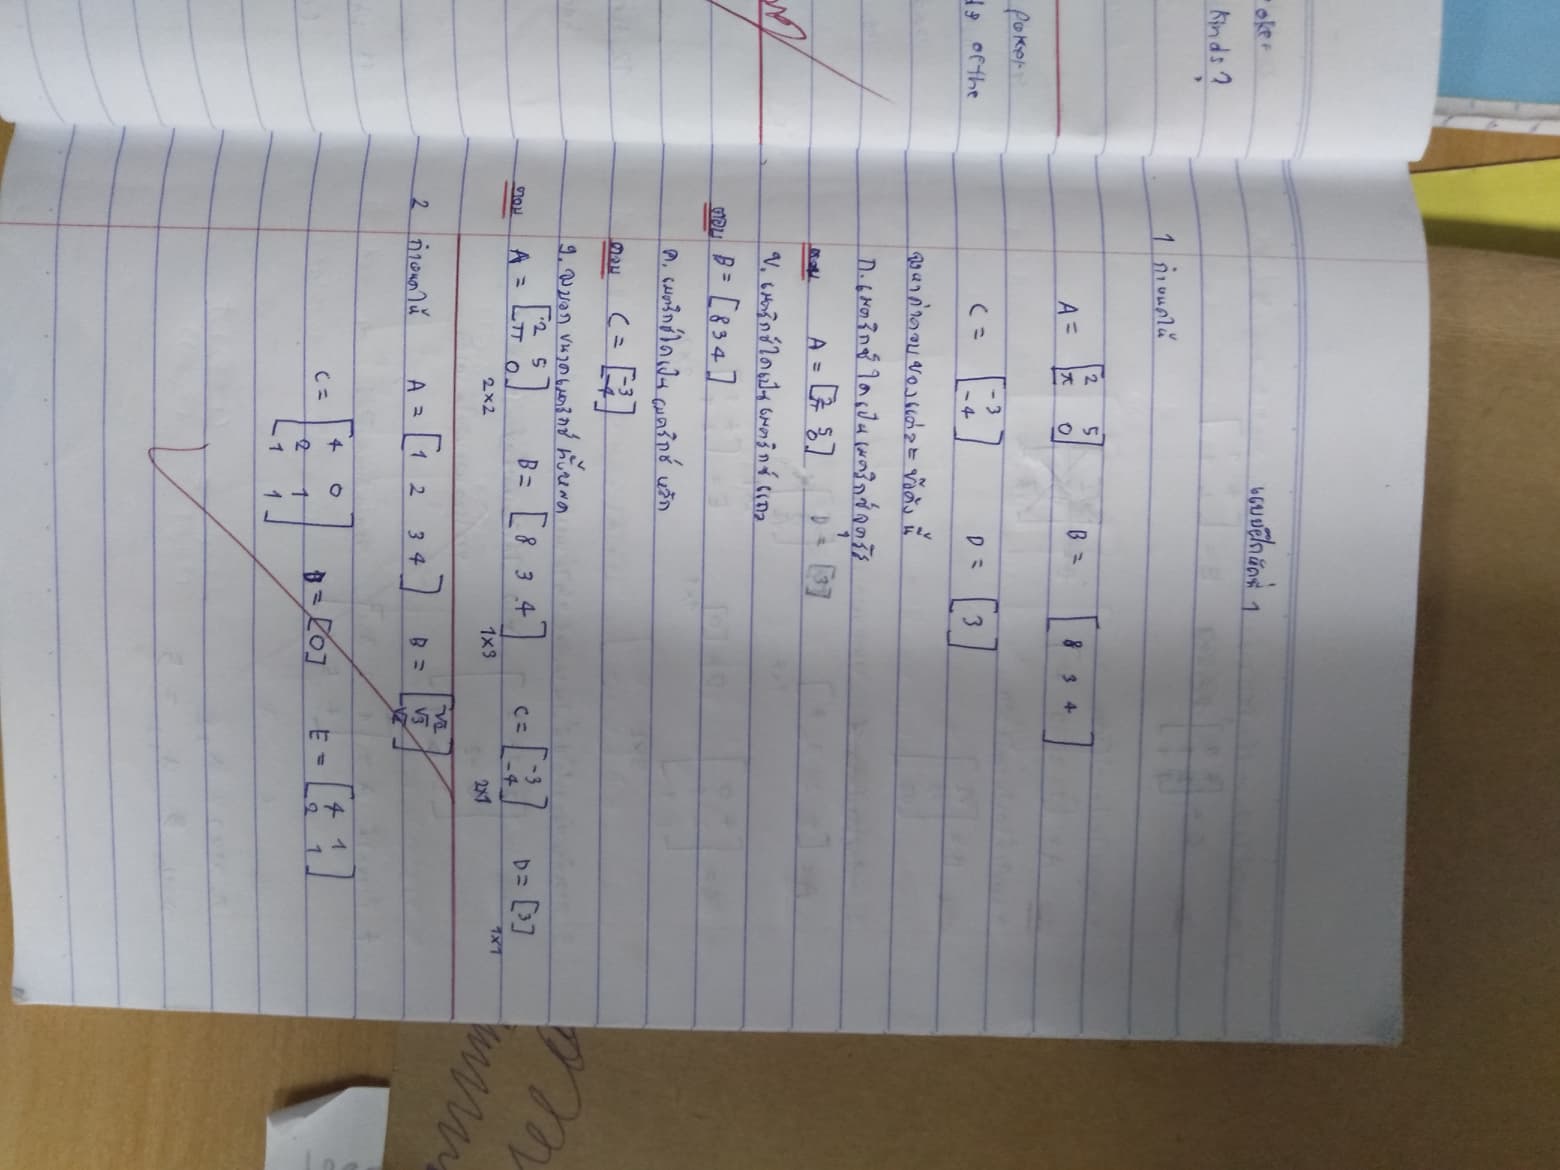 oker
kinds?
Poker
of the
แบบฝึกหัดที่ 1
1 กำหนดให้
A = [2 5
π 0] B = [8 3 4]
C = [-3
-4] D = [3]
จงหาคำตอบของแต่ละข้อดังนี้
ก. เมตริกซ์ใดเป็นเมตริกซ์จตุรัส
ตอบ A = [2 5
π 0] D = [3]
ข. เมตริกซ์ใดเป็นเมตริกซ์แถว
ตอบ B = [8 3 4]
ค. เมตริกซ์ใดเป็นเมตริกซ์ หลัก
ตอบ C = [-3
-4]
ง. จงบอก ขนาดเมตริกซ์ ทั้งหมด
ตอบ A = [2 5
π 0] 2×2 B = [8 3 4] 1×3 C = [-3
-4] 2×1 D = [3] 1×1
2 กำหนดให้ A = [1 2 3 4] B = [√2
√3
√2]
C = [4 0
2 1
1 1] D = [0] E = [4 1
2 1]